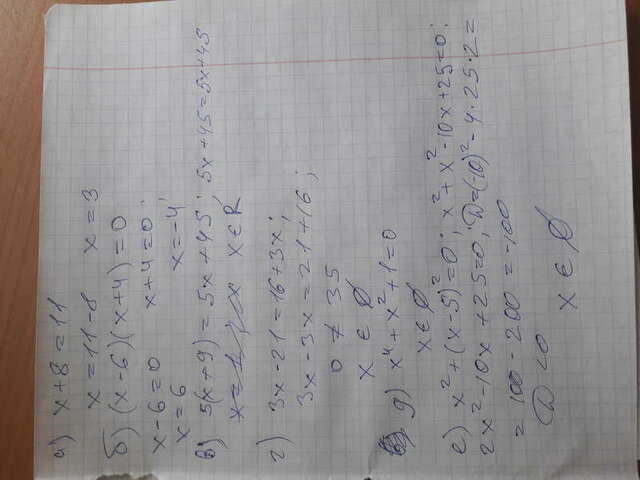 а) x+8=11
x=11-8 x=3
б) (x-6)(x+4)=0
x-6=0 x+4=0;
x=6 x=-4
в) 5(x+9)=5x+45; 5x+45=5x+45
x∈R
г) 3x-21=16+3x;
3x-3x=21+16;
0≠35
x∈∅
д) x⁴+x²+1=0
x∈∅
е) x²+(x-5)²=0; x²+x²-10x+25=0;
2x²-10x+25=0; D=(-10)²-4·25·2=
=100-200=-100
D<0
x∈∅